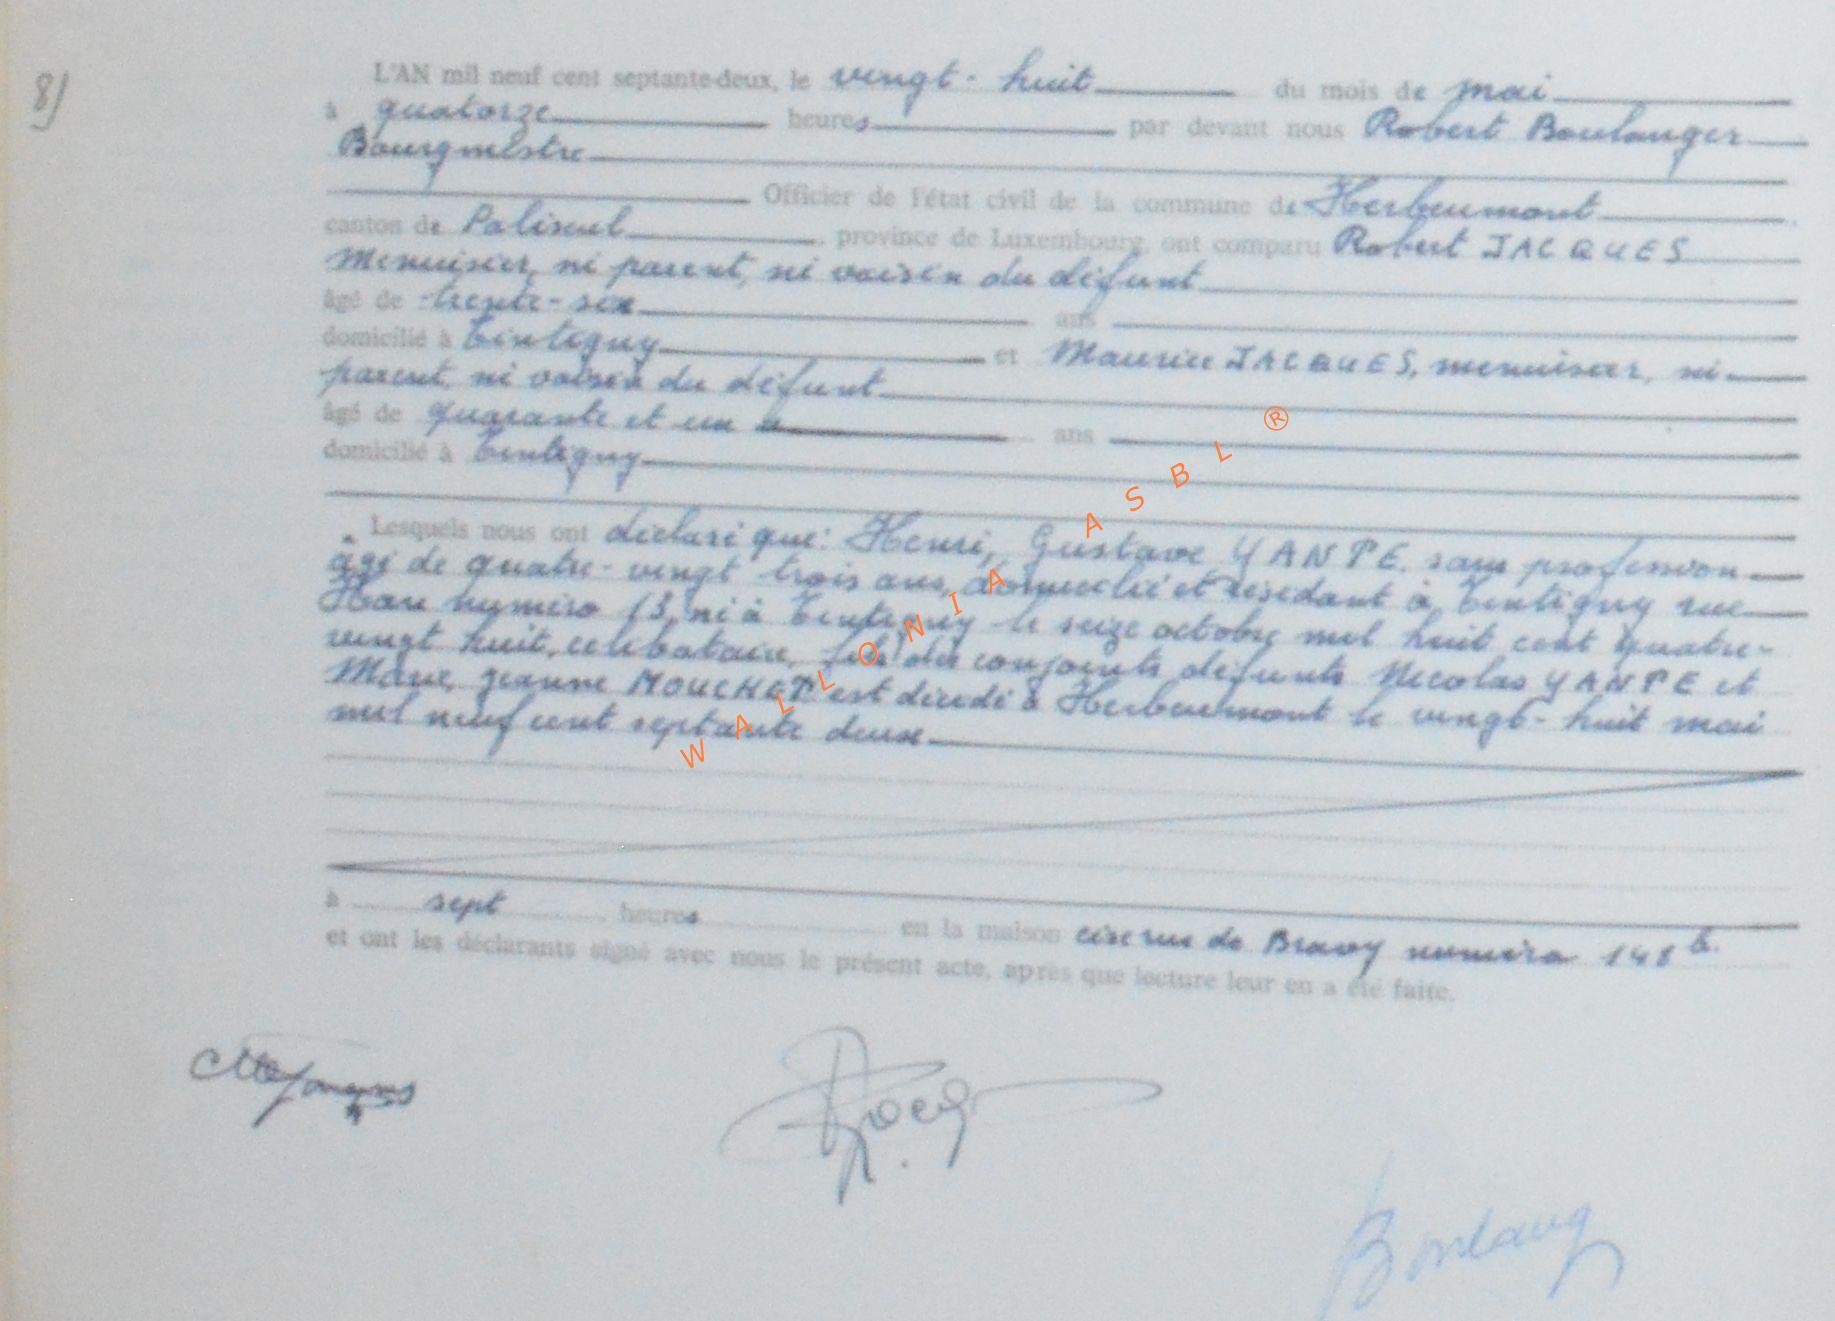 8)
L'AN mil neuf cent septante-deux, le vingt-huit du mois de mai
à quatorze heures par devant nous Robert Boulanger
Bourgmestre
Officier de l'état civil de la commune de Herbeumont
canton de Paliseul, province de Luxembourg, ont comparu Robert JACQUES
Menuisier, ni parent, ni voisin du défunt
âgé de trente-six ans
domicilié à Tintigny et Maurice JACQUES, menuisier, ni
parent, ni voisin du défunt
âgé de quarante et un ans
domicilié à Tintigny
Lesquels nous ont déclaré que: Henri, Gustave YANPE, sans profession
âgé de quatre-vingt trois ans, domicilié et résidant à Tintigny rue
Hau numéro 13, né à Tintigny le seize octobre mil huit cent quatre-
vingt huit, célibataire, fils des conjoints défunts Nicolas YANPE et
Marie, Jeanne MOUCHET est décédé à Herbeumont le vingt-huit mai
mil neuf cent septante deux
à sept heures en la maison cise rue de Bravy numéro 148 b.
et ont les déclarants signé avec nous le présent acte, après que lecture leur en a été faite.
WALLONIA ASBL ®